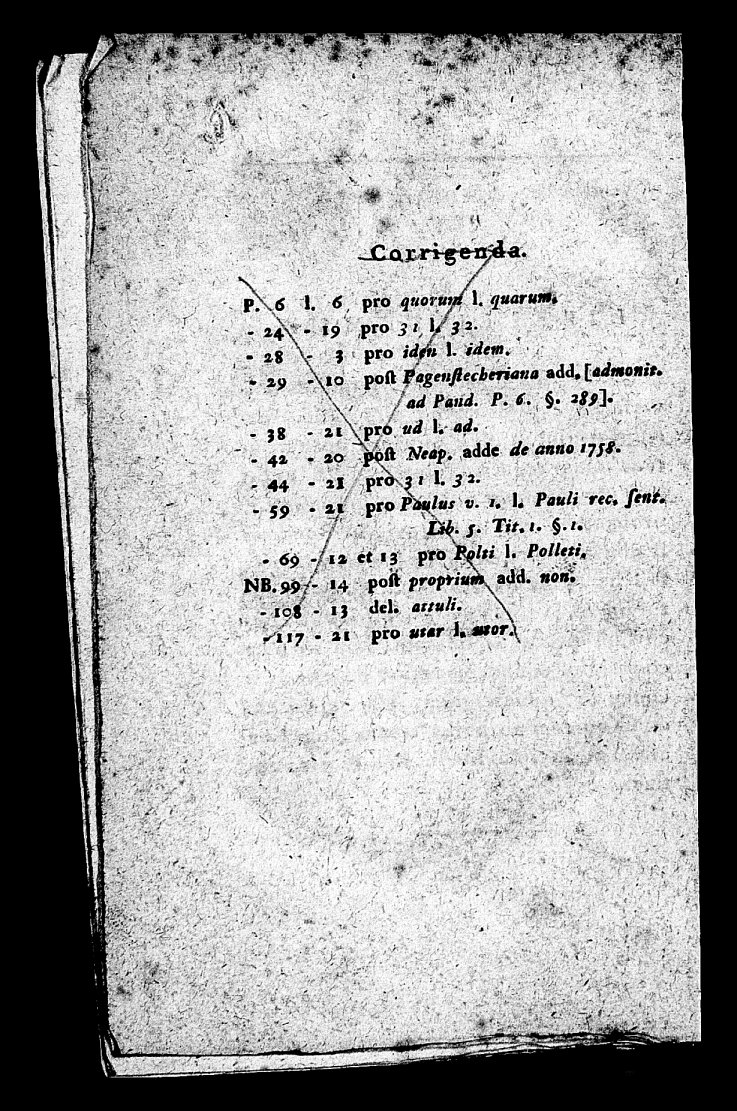 Corrigenda.
P. 6 l. 6 pro quorum l. quarum.
- 24 - 19 pro 31 l. 32.
- 28 - 3 pro iden l. idem.
- 29 - 10 poſt Pagenſtecheriana add. [admonit.
ad Pand. P. 6. §. 289].
- 38 - 21 pro ud l. ad.
- 42 - 20 poſt Neap. adde de anno 1758.
- 44 - 21 pro 31 l. 32.
- 59 - 21 pro Paulus v. 1. l. Pauli rec. ſent.
Lib. 5. Tit. 1. §. 1.
- 69 - 12 et 13 pro Polti l. Polleti.
NB. 99 - 14 poſt proprium add. non.
- 108 - 13 del. attuli.
- 117 - 21 pro utar l. utor.